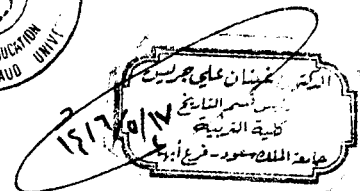 EDUCATION
UNIV
الدكتور غيثان علي جريس
رئيس قسم التاريخ
كلية التربية
جامعة الملك سعود - فرع أبها
١٤١٦/٥/١٧